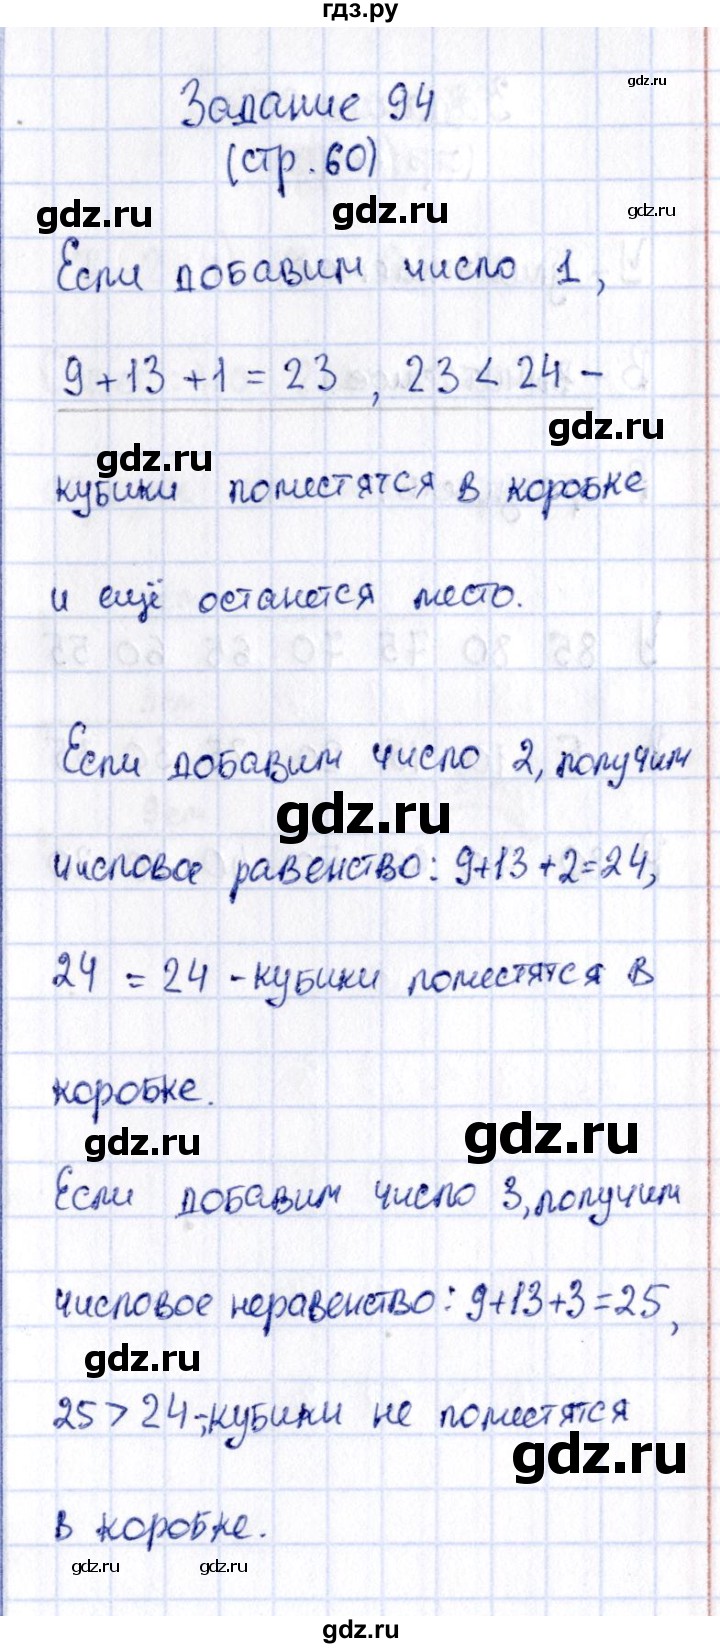 гдз.ру
gdz.ru
Задание 94
(стр. 60)
gdz.ru gdz.ru gdz.ru
Если добавим число 1,
9+13+1=23, 23<24-
gdz.ru
gdz.ru
кубики поместятся в коробке
и ещё останется место.
Если добавим число 2, получим
gdz.ru
числовое равенство: 9+13+2=24,
24 = 24 - кубики поместятся в
коробке.
gdz.ru gdz.ru
Если добавим число 3, получим
числовое неравенство: 9+13+3=25,
gdz.ru
25 > 24-; кубики не поместятся
gdz.ru
в коробке.
gdz.ru gdz.ru gdz.ru
gdz.ru